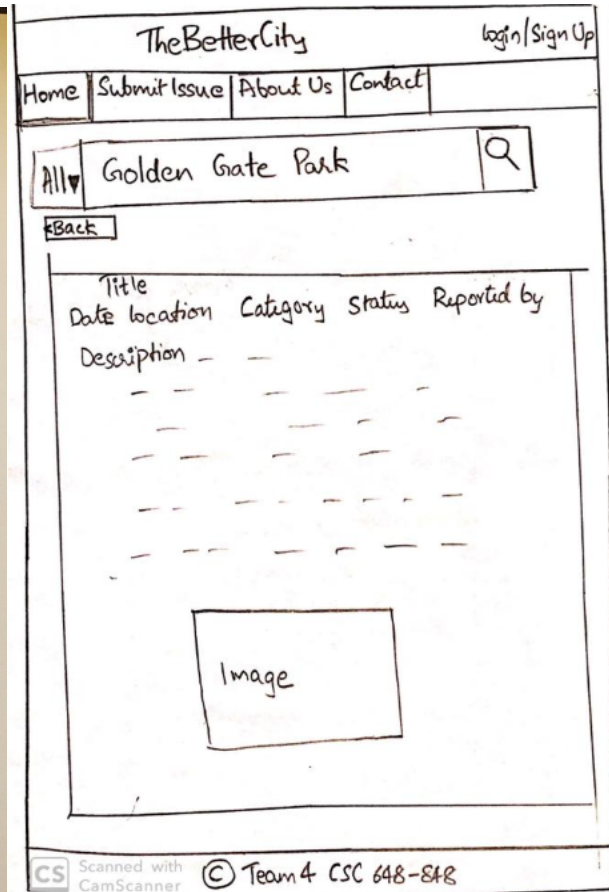 TheBetterCity Login/Sign Up
Home Submit Issue About Us Contact
All▾ Golden Gate Park
<Back
Title
Date location Category Status Reported by
Description
Image
© Team 4 CSC 648-848
CS Scanned with
CamScanner